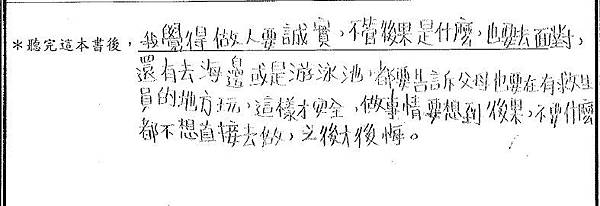 *聽完這本書後,我覺得做人要誠實,不管後果是什麼,也要去面對,
還有去海邊或是游泳池,都要告訴父母也要在有救生
員的地方玩,這樣才安全,做事情要想到後果,不要什麼
都不想直接去做,之後才後悔。